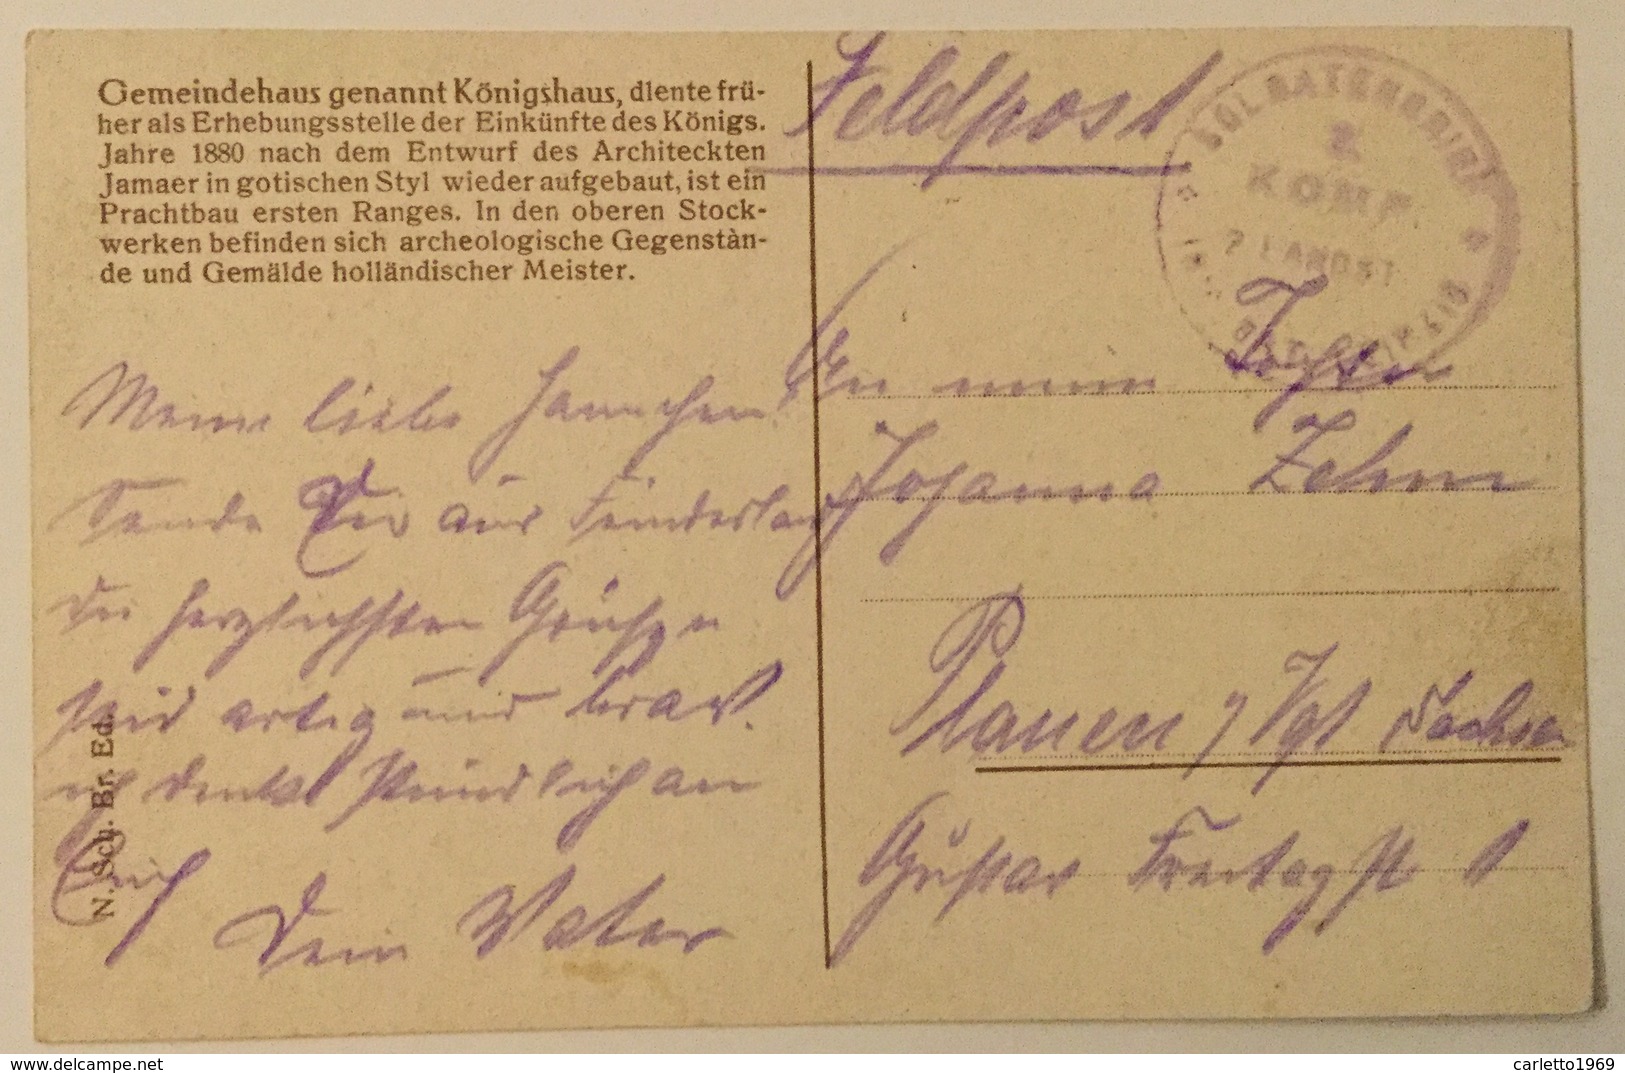 Gemeindehaus genannt Königshaus, diente frü-
her als Erhebungsstelle der Einkünfte des Königs.
Jahre 1880 nach dem Entwurf des Architeckten
Jamaer in gotischen Styl wieder aufgebaut, ist ein
Prachtbau ersten Ranges. In den oberen Stock-
werken befinden sich archeologische Gegenstàn-
de und Gemälde holländischer Meister.
Meine liebe Hannchen!
Sende Dir aus Feindesland
die herzlichsten Grüße
seid artig und brav.
ich denke stündlich an
Euch
Dein Vater
N. Sch. Br. Ed.
Feldpost
SOLDATENBRIEF
2.
KOMP.
LANDST
An meine Tochter
Johanna Zehm
Plauen i/Vgt Sachsen
Gustav Freitag St